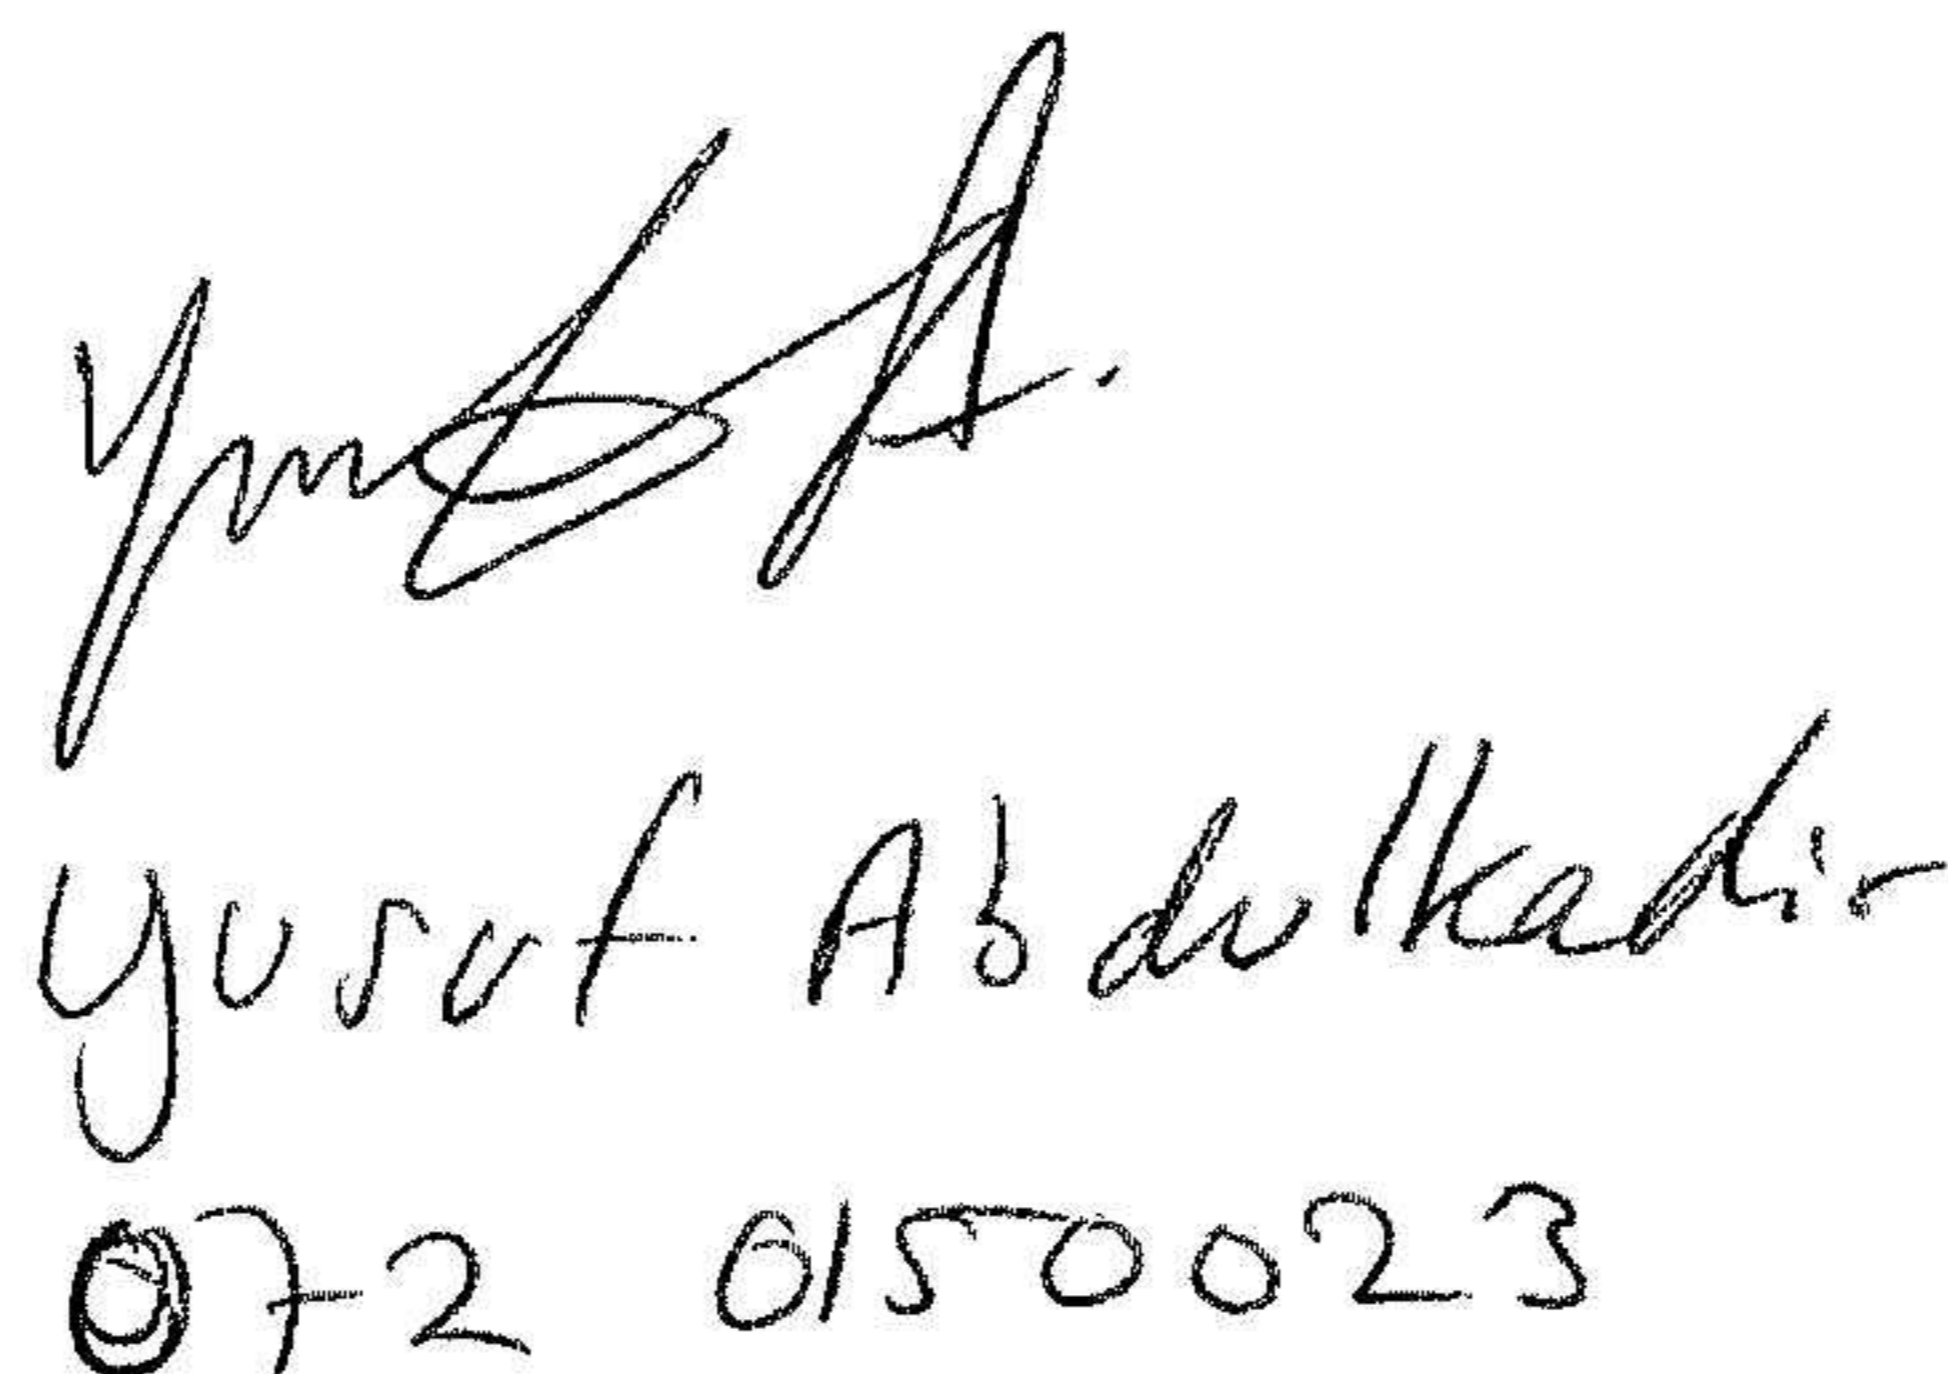 Yusuf A.
Yusuf Abdulkadir
072 0150023